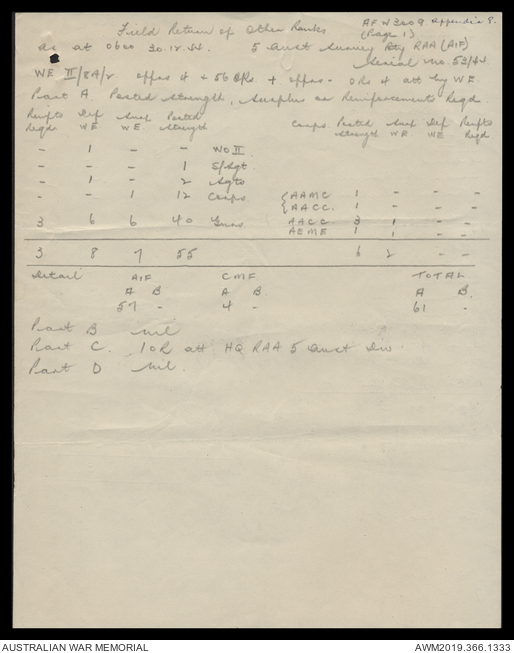 Field Return of Other Ranks
AFW3009 Appendix 8.
(Page 1)
as at 0600 30.12.44. 5 Aust Survey Bty RAA (AIF)
Serial No. 53/44
WE II/8A/2 offrs 4 + 56 ORs + offrs - ORs 4 att by WE
Part A. Posted Strength, Surplus or Reinforcement Reqd.
Reinfts Def Surp Posted
Reqd. WE WE Strength
Corps Posted Surp Def Reinfts
Strength WE. WE Reqd
- 1 - - WO II.
- - - 1 S/Sgt.
- 1 - 2 Sgts
- - 1 12 Corps {AAMC 1 - - -
{AACC. 1 - - -
3 6 6 40 Gnrs AACC 3 1 - -
AEME 1 1 - -
3 8 7 55 6 2 - -
Detail AIF CMF TOTAL
A B A B. A B.
57 - 4 - 61 -
Part B Nil
Part C. 1 OR att HQ RAA 5 Aust Div.
Part D Nil.
AUSTRALIAN WAR MEMORIAL AWM2019.366.1333